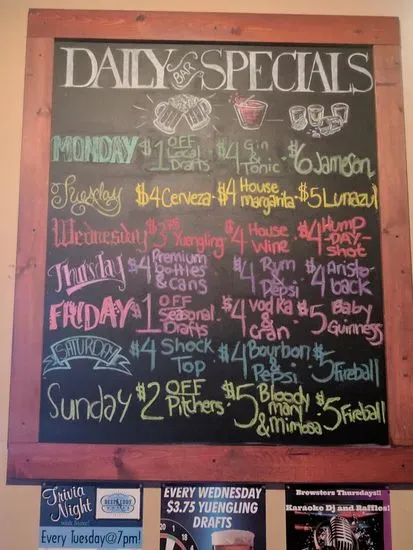 DAILY BAR SPECIALS
MONDAY $1 OFF Local Drafts $4 Gin & Tonic $6 Jameson
Tuesday $4 Cerveza $4 House margarita $5 Lunazul
Wednesday $3.75 Yuengling $4 House Wine $4 HUMP-DAY-shot
Thursday $4 Premium bottles & cans $4 Rum & Pepsi $4 Aristoback
FRIDAY $1 OFF Seasonal Drafts $4 Vodka & cran $5 Baby Guinness
SATURDAY $4 Shock Top $4 Bourbon & Pepsi $5 Fireball
Sunday $2 OFF Pitchers $5 Bloody mary & Mimosa $5 Fireball
Trivia Night
Every Tuesday@7pm!
EVERY WEDNESDAY
$3.75 YUENGLING
DRAFTS
Brewsters Thursdays!!
Karaoke Dj and Raffles!